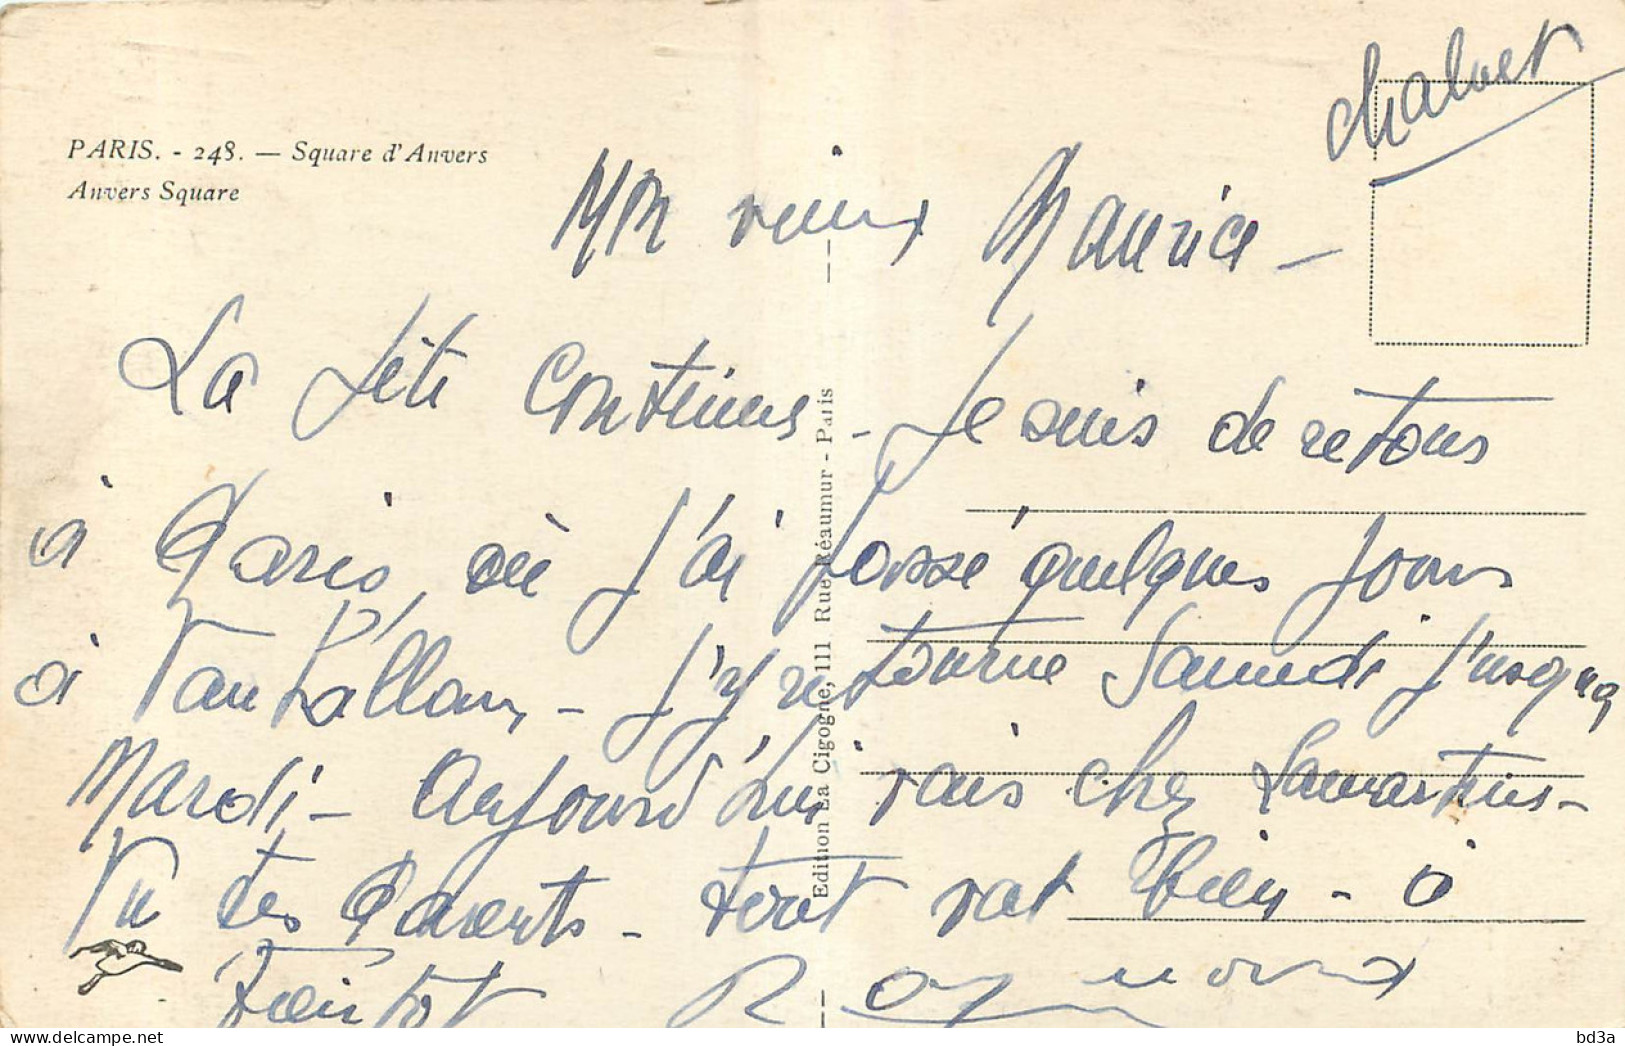 PARIS. - 248. — Square d'Anvers
Anvers Square
Chalvet
Mon vieux Maurice -
La fête continue - Je suis de retour
à Paris, où j'ai passé quelques jours
à - j'y retourne Samedi jusqu'à
Mardi - Aujourd'hui vais chez Lamartine -
Vu tes Parents - tout vat bien - à
bientot Raymond
Edition La Cigogne, 111 Rue Réaumur - Paris
bd3a